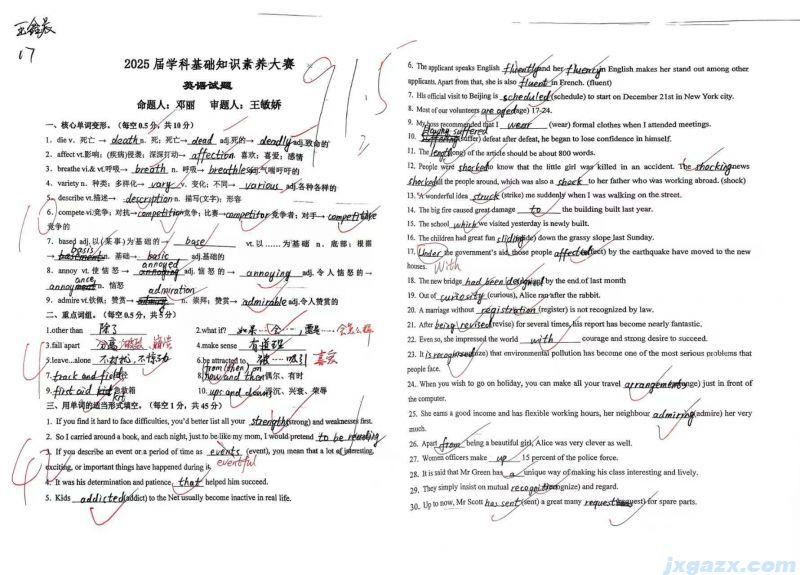 王鑫晨
17
2025 届学科基础知识素养大赛
英语试题
命题人：邓丽 审题人：王敏娇
91.5
一、核心单词变形。（每空 0.5 分，共 10 分）
1. die v. 死亡 → death n. 死；死亡→ dead adj.死的→ deadly adj.致命的
2. affect vt.影响；(疾病)侵袭；深深打动→ affection n. 喜欢；喜爱；感情
3. breathe vi.& vt.呼吸→ breath n. 呼吸→ breathless adj.气喘吁吁的
4. variety n. 种类；多样化→ vary v. 变化；不同→ various adj.各种各样的
5. describe vt.描述→ description n. 描写(文字)；形容
6. compete vi.竞争；对抗→ competition 竞争；比赛→ competitor 竞争者；对手→ competitive
竞争的
7. based adj.以(某事)为基础的→ base vt. 以……为基础 n. 底部；根据
→ basis n. 基础→ basic adj.基础的
8. annoy vt. 使恼怒→ annoyed adj. 恼怒的→ annoying adj.令人恼怒的→
annoyance n. 恼怒
9. admire vt.钦佩；赞赏→ admiration n. 崇拜；赞赏→ admirable adj.令人赞赏的
二、重点词组。（每空 0.5 分，共 5 分）
1.other than 除了 2.what if?
3.fall apart 崩溃 4.make sense 有道理
5.leave...alone 不打扰，不惊动 6.be attracted to 被…吸引 喜欢
7. track and field 8. now and then 偶尔、有时
9. first aid kit 急救箱 10. ups and downs 浮沉、兴衰、荣辱
三、用单词的适当形式填空。（每空 1 分，共 45 分）
42
1. If you find it hard to face difficulties, you'd better list all your strengths (strong) and weaknesses first.
2. So I carried around a book, and each night, just to be like my mom, I would pretend to be reading
3. If you describe an event or a period of time as events (event), you mean that a lot of interesting,
exciting, or important things have happened during it. eventful
4. It was his determination and patience that helped him succeed.
5. Kids addicted (addict) to the Net usually become inactive in real life.
6. The applicant speaks English fluently and her fluency in English makes her stand out among other
applicants. Apart from that, she is also fluent in French. (fluent)
7. His official visit to Beijing is scheduled (schedule) to start on December 21st in New York city.
8. Most of our volunteers are aged (age) 17-24.
9. My boss recommended that I wear (wear) formal clothes when I attended meetings.
10. Having suffered (suffer) defeat after defeat, he began to lose confidence in himself.
11. The length (long) of the article should be about 800 words.
12. People were shocked to know that the little girl was killed in an accident. The shocking news
shocked all the people around, which was also a shock to her father who was working abroad. (shock)
13. A wonderful idea struck (strike) me suddenly when I was walking on the street.
14. The big fire caused great damage to the building built last year.
15. The school which we visited yesterday is newly built.
16. The children had great fun sliding (slide) down the grassy slope last Sunday.
17. Under the government's aid, those people affected (affect) by the earthquake have moved to the new
houses. With
18. The new bridge had been designed by the end of last month
19. Out of curiosity (curious), Alice ran after the rabbit.
20. A marriage without registration is not recognized by law.
21. After being revised (revise) for several times, his report has become nearly fantastic.
22. Even so, she impressed the world with courage and strong desire to succeed.
23. It is recognised that environmental pollution has become one of the most serious problems that
people face.
24. When you wish to go on holiday, you can make all your travel arrangements just in front of
the computer.
25. She earns a good income and has flexible working hours, her neighbour admiring (admire) her very
much.
26. Apart from being a beautiful girl, Alice was very clever as well.
27. Women officers make up 15 percent of the police force.
28. It is said that Mr Green has a unique way of making his class interesting and lively.
29. They simply insist on mutual recognition (recognize) and regard.
30. Up to now, Mr Scott has sent (sent) a great many requests (request) for spare parts.
jxgazx.com